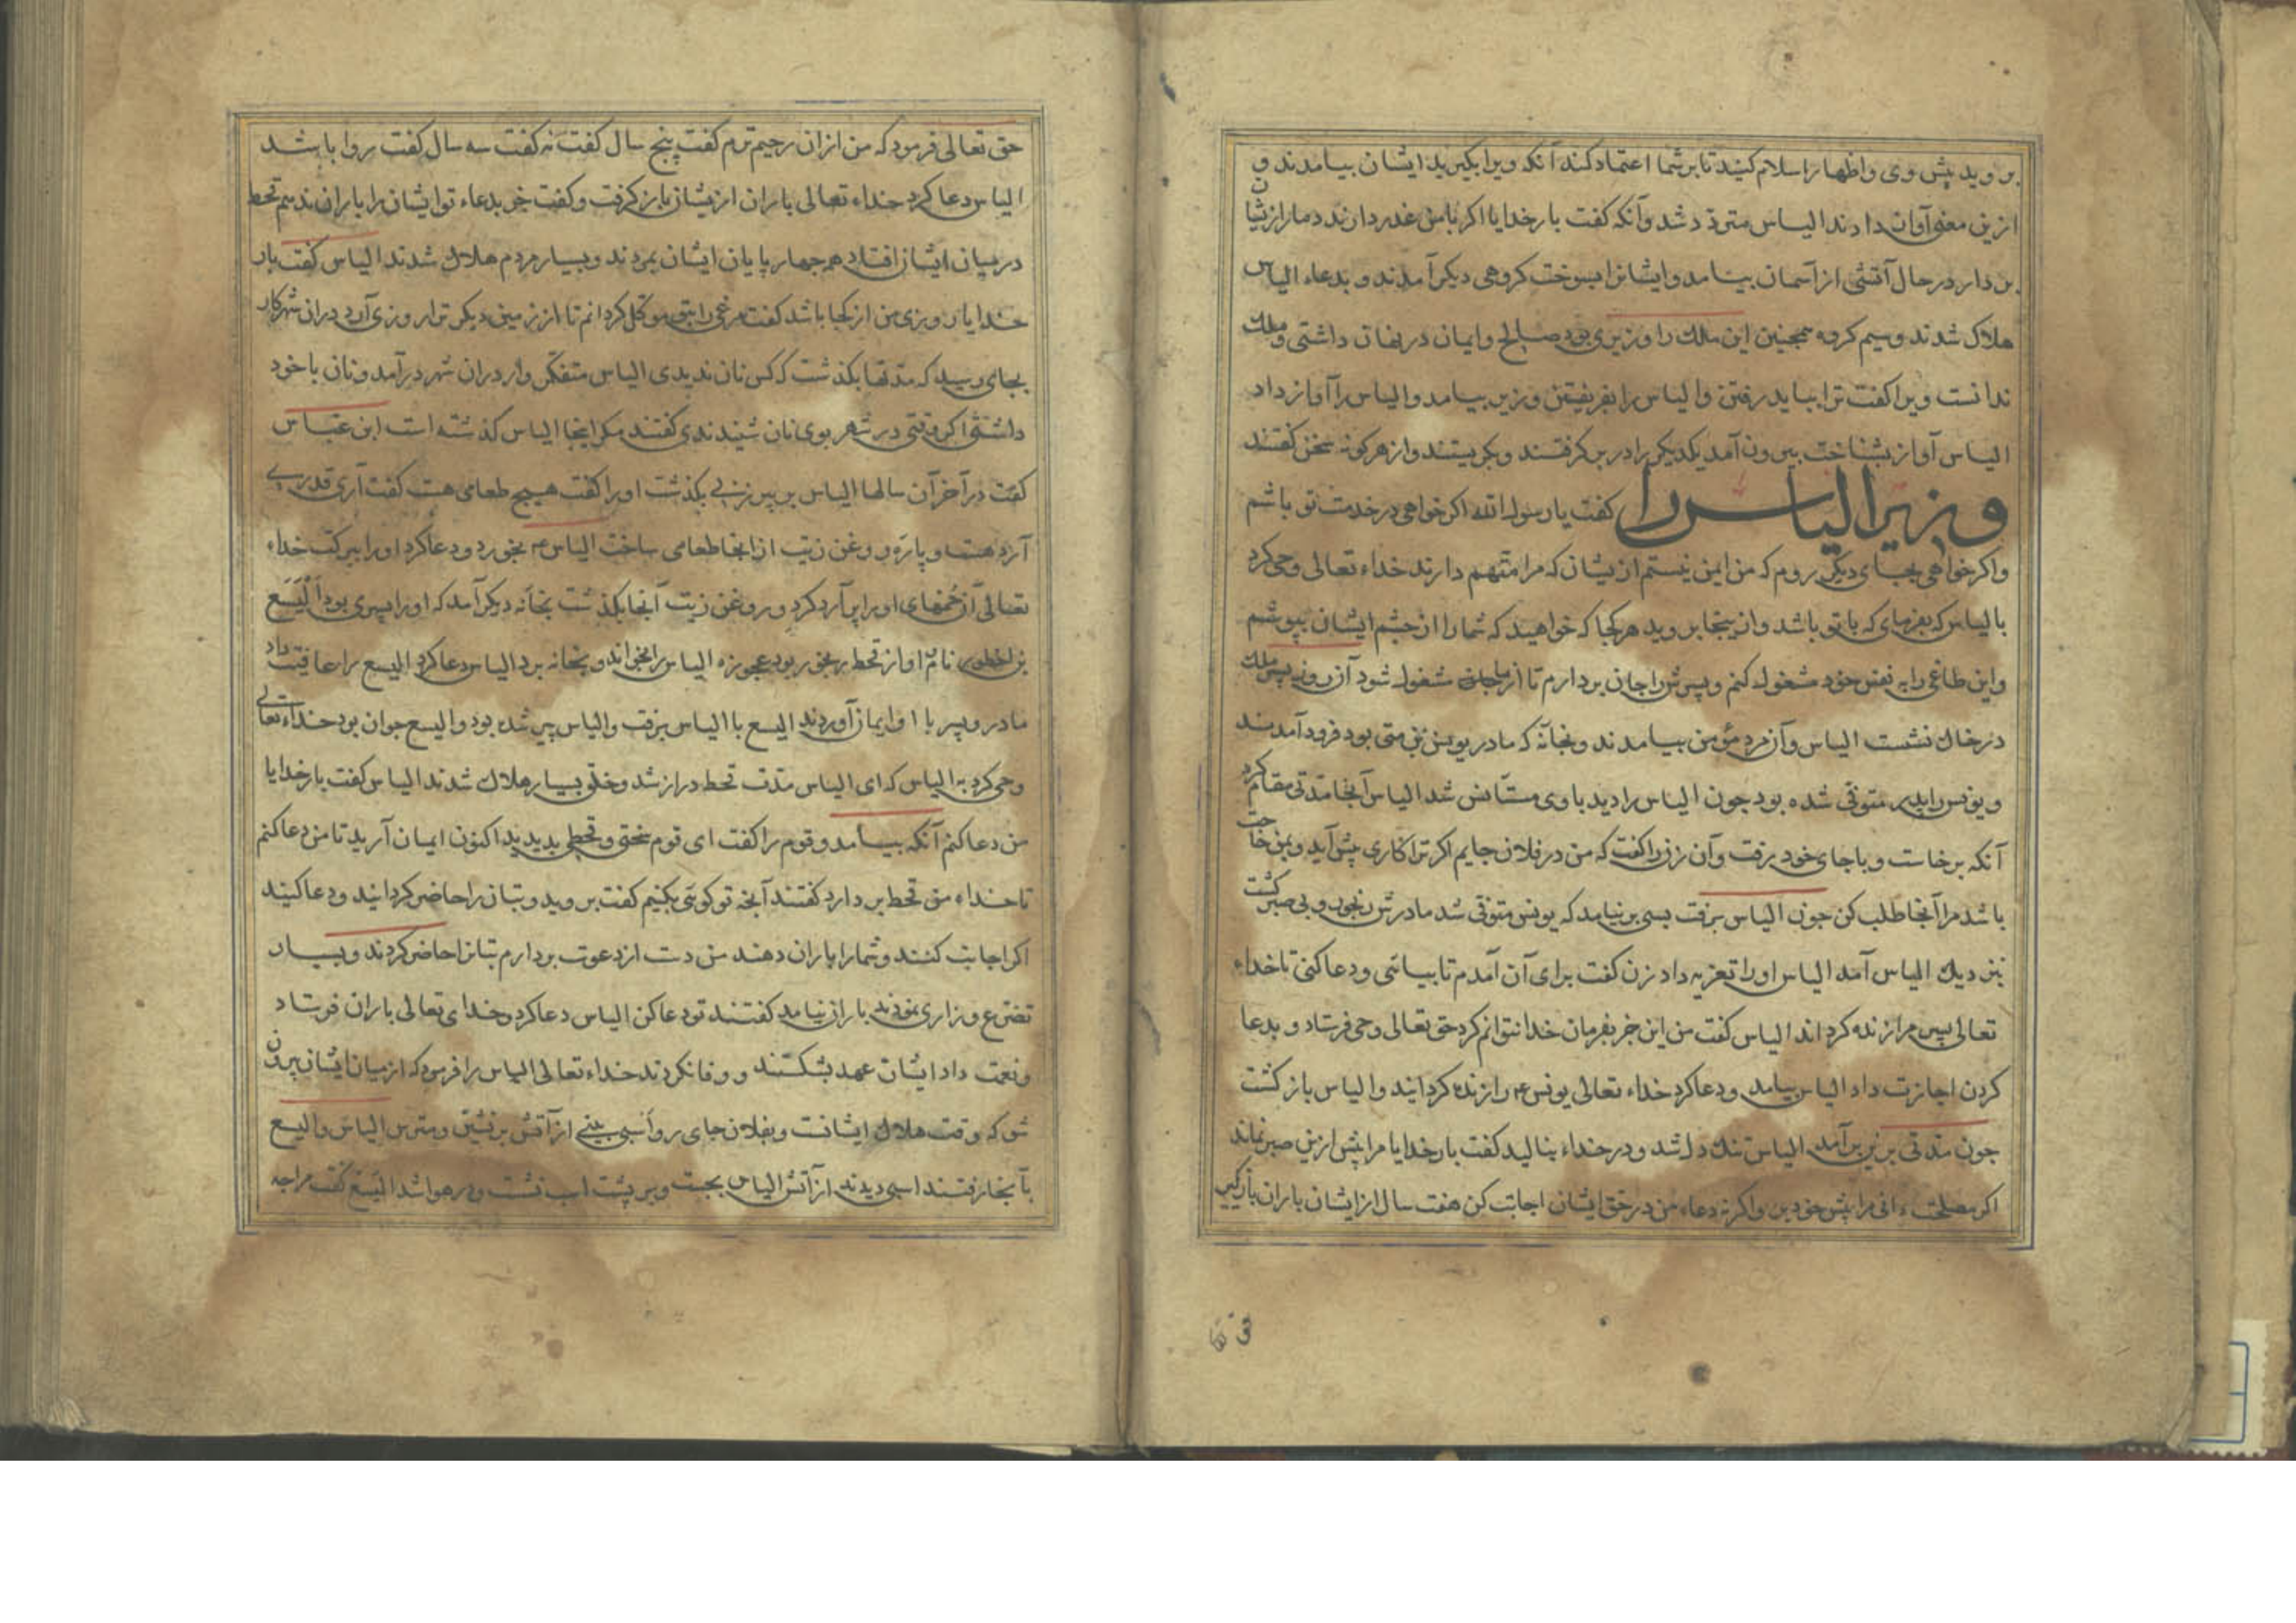 بروید پیش وی و اظهار اسلام کنید تا بر شما اعتماد کند آنکه ویرا بکیرید ایشان بیامدند و
ازین معنی آوان دادند الیاس متردد شد وآنکه کفت بار خدایا اکر با من غدر دارند دمار ازیشان
بن دار در حال آتشی از آسمان بیامد وایشانرا بسوخت کروهی دیکر آمدند و بدعاء الیاس
هلاک شدند وسیم کروه همچنین این ملک را وزیری بود صالح وایمان در نهان داشتی و ملک
ندانست ویرا کفت ترا بباید رفتن والیاس را بفریفتن وزیر بیامد والیاس را آواز داد
الیاس آواز بشناخت بیرون آمد یکدیکر را در بر کرفتند وبکریستند واز هر کونه سخن کفتند
وزیر الیاس را کفت یا رسول الله اکر خواهی در خدمت تو باشم
واکر خواهی بجای دیکر روم که من ایمن نیستم ازیشان که مرا متهم دارند خداء تعالی وحی کرد
بالیاس که بفرمای که با تو باشد واز ینجا بروید هر کجا که خواهید که شما را از چشم ایشان بپوشم
واین طاغی را به نفس خود مشغول کنم وپسرش را جان بردارم تا از شما مشغول شود آن روز پسر ملک
در خاک نشست الیاس وآن مرد مؤمن بیامدند وبخانه که مادر یونس بن متی بود فرود آمدند
ویونس را پدر متوفی شده بود جون الیاس را دید با وی مستأنس شد الیاس آنجا مدتی مقام کرد
آنکه برخاست وباجای خود برفت وآن زن را کفت که من در فلان جایم اکر ترا کاری پیش آید وبمن حاجت
باشد مرا آنجا طلب کن جون الیاس برفت بسی برنیامد که یونس متوفی شد مادرش رنجور وبی صبر کشت
نزدیک الیاس آمد الیاس اورا تعزیه داد زن کفت برای آن آمدم تا بیائی ودعا کنی تا خداء
تعالی پسر مرا زنده کرداند الیاس کفت من این جز بفرمان خدا نتوانم کرد حق تعالی وحی فرستاد و بدعا
کردن اجازت داد الیاس بیامد ودعا کرد خداء تعالی یونس را زنده کردانید والیاس باز کشت
جون مدتی برین برآمد الیاس تنک دل شد ودر خداء بنالید کفت بار خدایا مرا پیش ازین صبر نماند
اکر مصلحت دانی مرا پیش خود بر واکر نه دعاء من در حق ایشان اجابت کن هفت سال از ایشان باران بازکیر
حق تعالی فرمود که من ازان رحیم ترم کفت پنج سال کفت نه کفت سه سال کفت روا باشد
الیاس دعا کرد خداء تعالی باران ازیشان باز کرفت وکفت جز بدعاء تو ایشان را باران ندهم قحط
در میان ایشان افتاد همه جهار پایان ایشان بمردند وبسیار مردم هلاک شدند الیاس کفت بار
خدایا روزی من از کجا باشد کفت مرغی را بتو موکل کردانم تا از زمین دیکر ترا روزی آرد دران شهر کار
بجای رسید که مدتها بکذشت که کس نان ندیدی الیاس متفکر وار دران شهر درآمد ونان با خود
داشتی اکر وقتی در شهر بوی نان شنیدندی کفتند مکر اینجا الیاس کذشته است ابن عباس
کفت در آخر آن سالها الیاس بر پیر زنی بکذشت اورا کفت هیچ طعامی هست کفت آری قدری
آرد هست وپاره روغن زیت ازانجا طعامی ساخت الیاس بخورد ودعا کرد اورا ببرکت خداء
تعالی آن خمهای اورا پر آرد کرد وروغن زیت آنجا بکذشت بخانه دیکر آمد که اورا پسری بود الیسع
بن اخطوب نام او از قحط رنجور بود عجوزه الیاس را بخواند وبخانه برد الیاس دعا کرد الیسع را عافیت داد
مادر وپسر با او ایمان آوردند الیسع با الیاس برفت والیاس پیر شده بود والیسع جوان بود خداء تعالی
وحی کرد به الیاس که ای الیاس مدت قحط دراز شد وخلق بسیار هلاک شدند الیاس کفت بار خدایا
من دعا کنم آنکه بیامد وقوم را کفت ای قوم سختی وقحط بدیدید اکنون ایمان آرید تا من دعا کنم
تا خداء من قحط بردارد کفتند آنچه تو کوئی بکنیم کفت بروید وبتان را حاضر کردانید ودعا کنید
اکر اجابت کنند وشما را باران دهند من دست از دعوت بردارم بتانرا حاضر کردند وبسیار
تضرع وزاری نمودند باران نیامد کفتند تو دعا کن الیاس دعا کرد وخدای تعالی باران فرستاد
ونعمت داد ایشان عهد بشکستند ووفا نکردند خداء تعالی الیاس را فرمود که از میان ایشان بیرون
شو که وقت هلاک ایشانست وبفلان جای رو اسبی بینی از آتش برنشین ومترس الیاس والیسع
بآنجا رفتند اسبی دیدند از آتش الیاس بجست وبر پشت اسب نشست ودر هوا شد الیسع کفت مرا جه